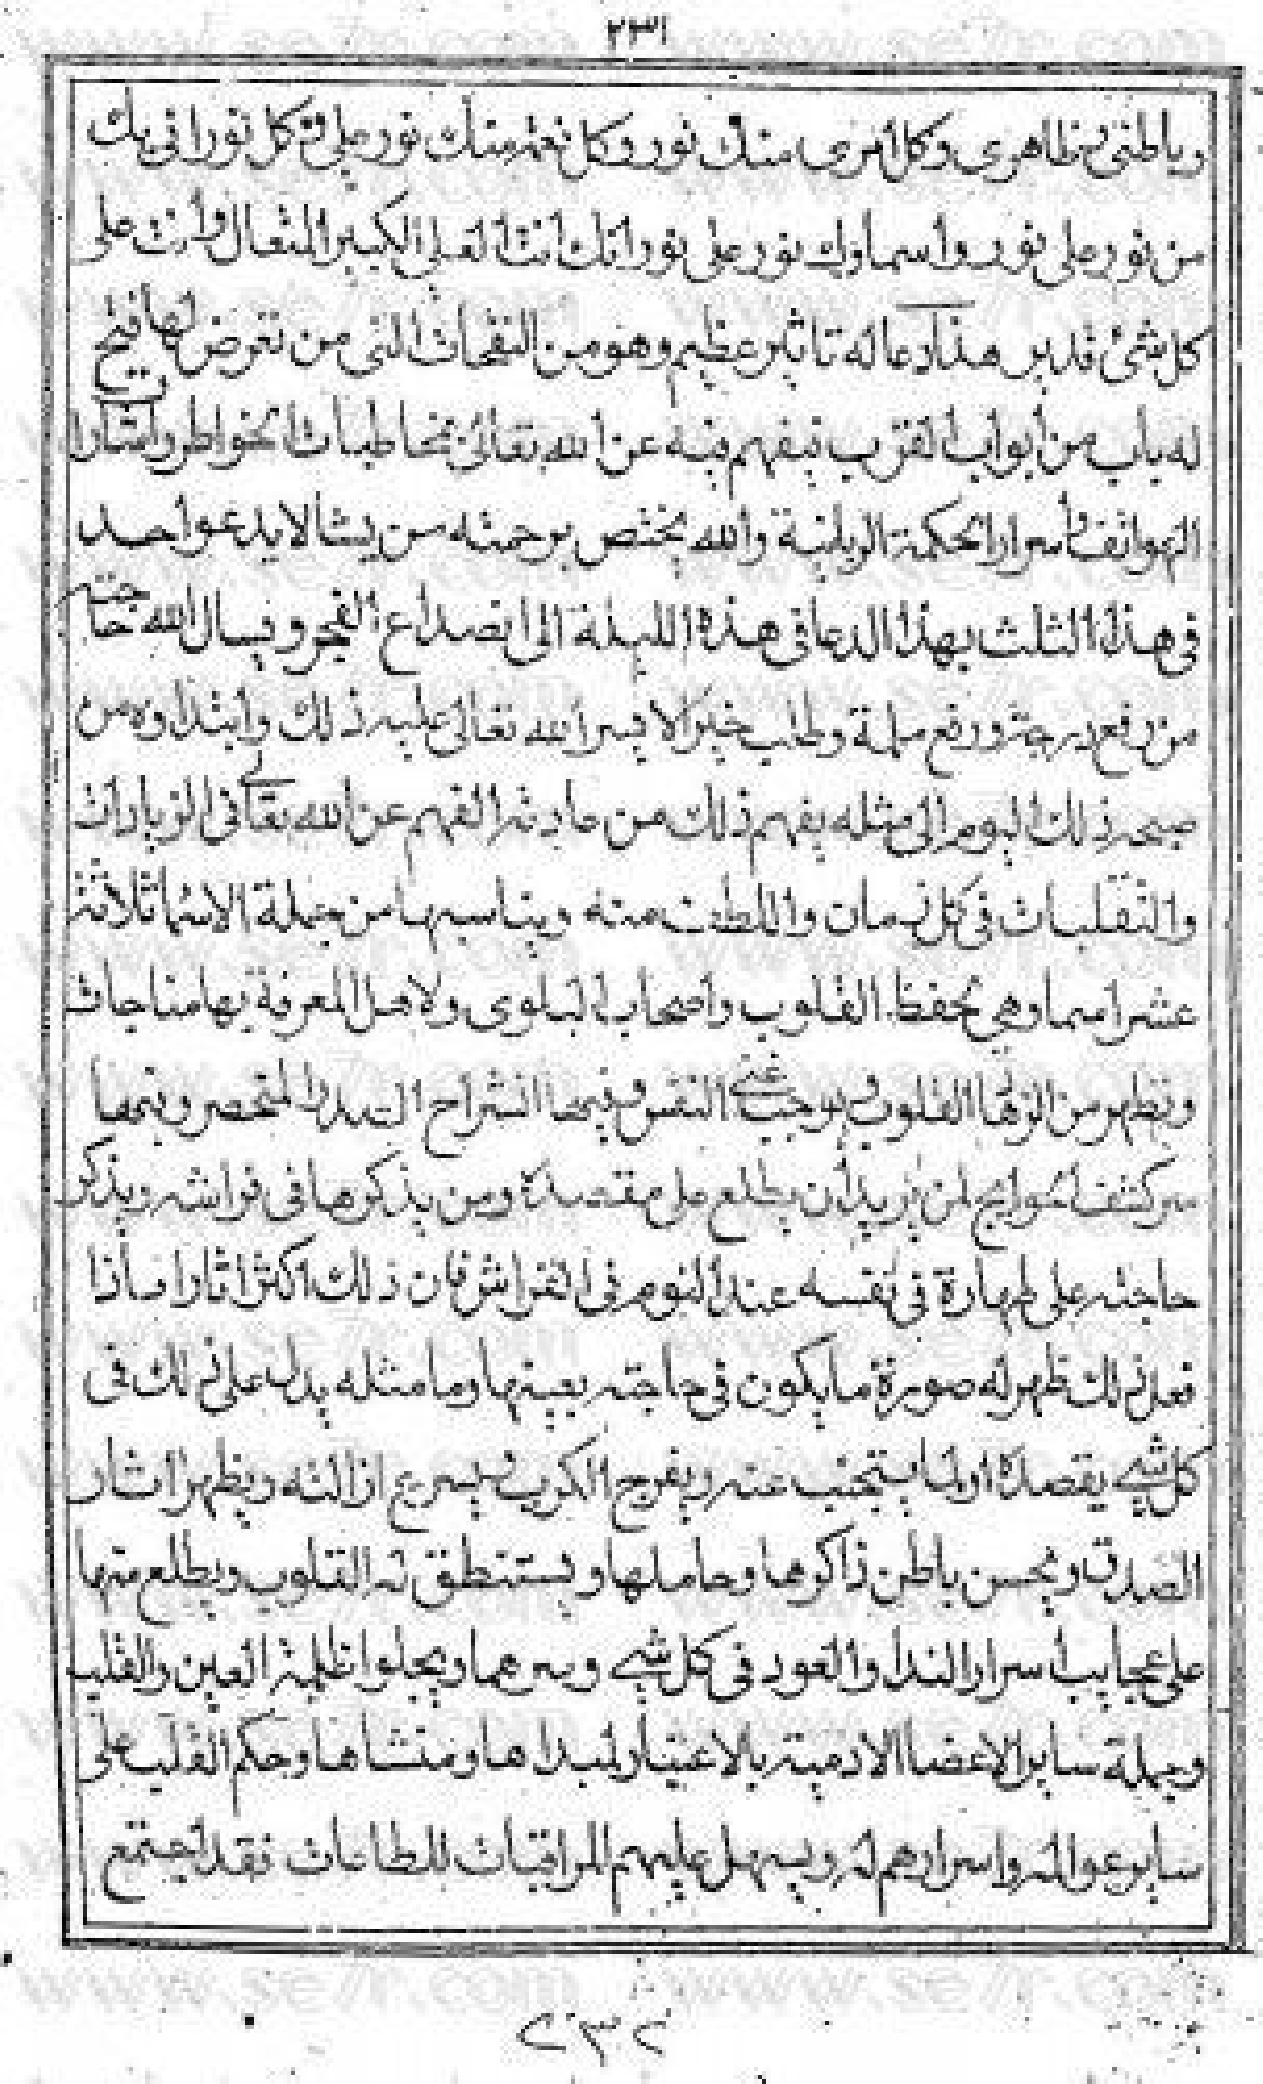 ٢٣١
وباطني بظاهري وكل أمري منك نور وكل نعم منك نور على كل نور اني بك
من نور على نور واسماوك نور على نور انك أنت العلي الكبير المتعال وأنت على
كل شئ قدير هذا دعا له تاثير عظيم وهو من النفحات التي من تعرض لها فتح
له باب من أبواب القرب فيفهم منه عن الله تعالى مخاطبات الخواطر واشارات
الهواتف وأسرار الحكمة الربانية والله يختص برحمته من يشا لا يدعو احد
في هذا الثلث بهذا الدعا في هذه الليلة الى انصداع الفجر ويسال الله حاجته
من رفع درجة ودفع ملمة وطلب خير الا يسر الله تعالى عليه ذلك وابتداوه من
صبحه ذلك اليوم الى مثله يفهم ذلك من مادته الفهم عن الله تعالى في الزيادات
والتقلبات في كل زمان واللطف منه ويناسبها من جملة الاسما ثلاثة
عشر اسما وهي تحفظ القلوب واصحاب البلوى ولاهل المعرفة بها مناجات
وتظهر من القلوب يوجب غنى النفس وفيها انشراح الصدر وفيها
سر كشف الحوايج لمن يريد أن يطلع على مقصده ومن يذكرها في فراشه ويذكر
حاجته على طهارة في نفسه عند النوم في الفراش فان ذلك اكثر اثارا فاذا
فعل ذلك ظهر له صورة ما يكون في حاجته بعينها وما مثله يدل على ذلك في
كل شيء يقصده اولما يستجيب عنه ويفرج الكرب ويسرع ازالته ويظهر اثار
الصدق ويحسن باطن ذاكرها وحاملها ويستنطق له القلوب ويطلع منها
على عجايب أسرار البدا والعود في كل شيء وسرهما ويجلوا ظلمة العين والقلب
وجملة ساير الاعضا الادمية بالاعتبار لمبداها ومنتشاها وحكم القلب على
ساير عوالمه واسرارهم له ويسهل عليهم المراقبات للطاعات فقد اجتمع
٢٣٢